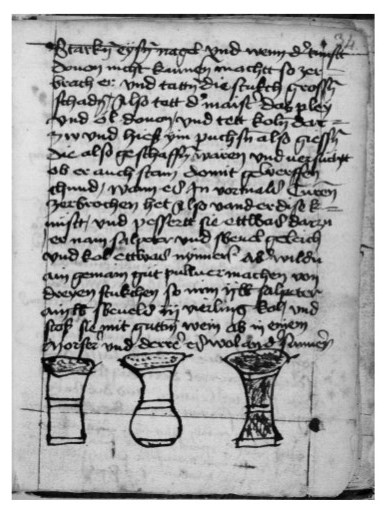 Starkn̄ eysn̄ nagel vnd wenn dʼ dunst
dovon nicht kunnen machtt so zer
brach er vnd tattn̄ die stukch grossn̄
schadn̄ Also tett dʼ maistʼ das pley
vnd ol dovon vnd tett koln̄ dar
zw vnd hieß ym puchsn̄ also giessn̄
die also geschaffn̄ waren vnd versucht
ob er auch stain domit gewerffen
chund / wann es In vormals Turen̄
zerbrochen het Also vand er dise k
unst / vnd pessertt sie ettwas darzu
er nam salpeter vnd swevel geleich
vnd kol ettwas mynnerʼ Als wildu
ain gemain gut pulluer machen von
dreyen stukchen so nym iiij lb salpeter
ain lb sweuels iij vierling kol vnd
stoß sie mit guttn̄ wein ab in einem
Morserʼ vnd derre es wol an dʼ sunnen̄